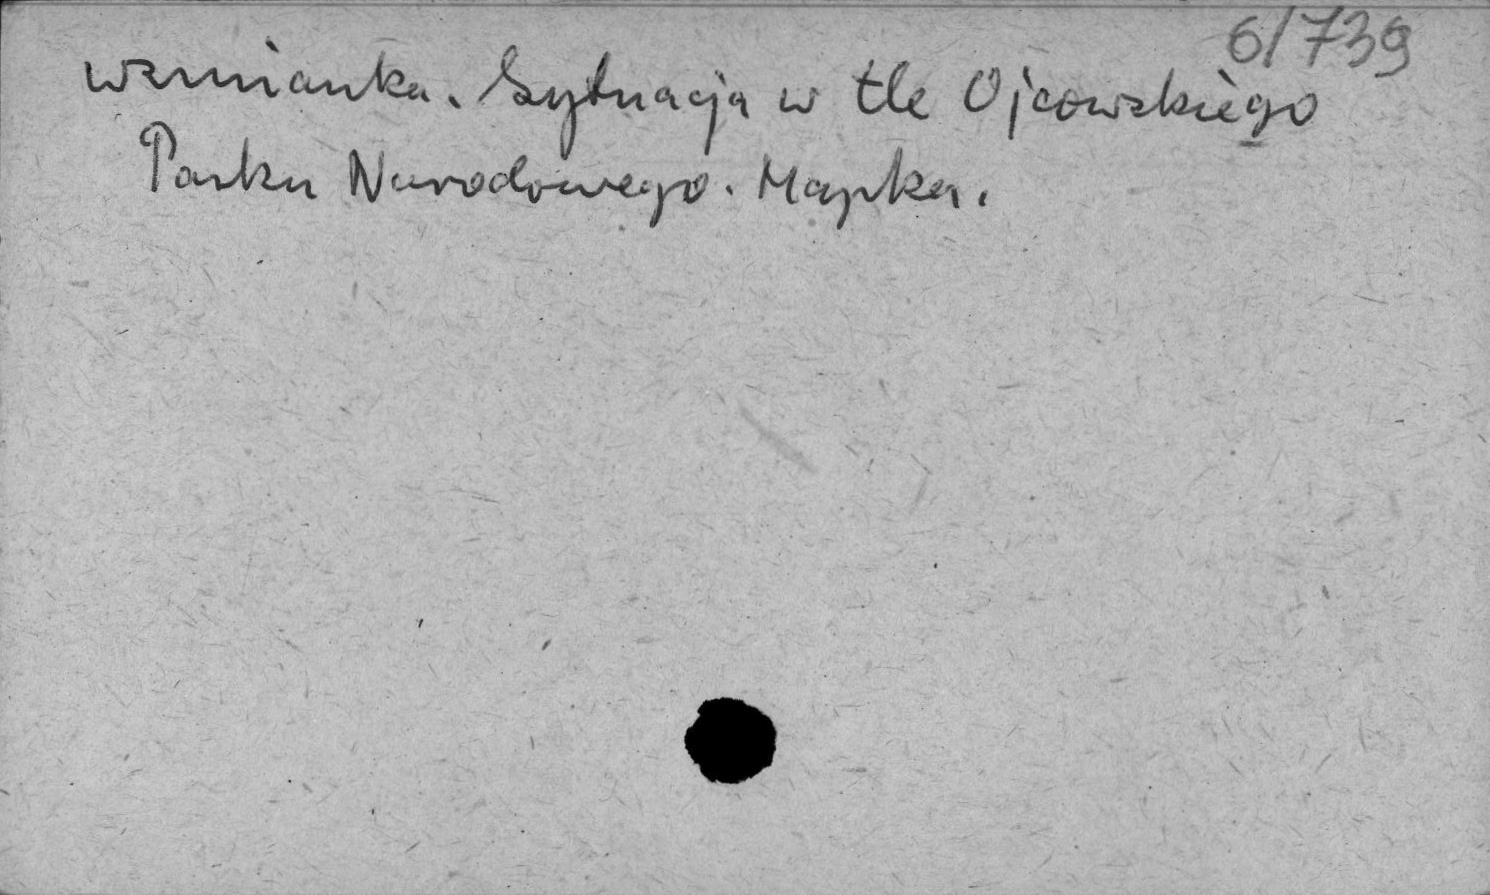 6/739
wzmianka. Sytuacja w tle Ojcowskiego
Parku Narodowego. Mapka.